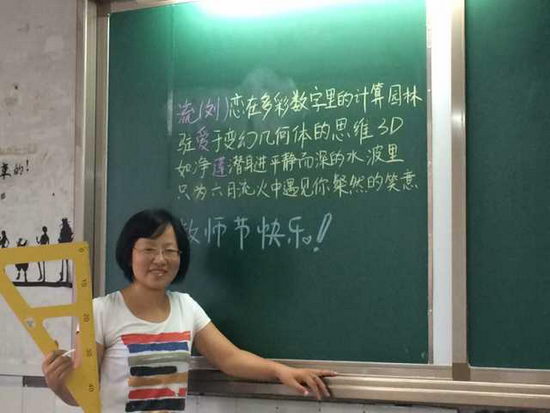 流(刘)恋在多彩数字里的计算园林
弦爱于变幻几何体的思维3D
如净莲潜进平静而深的水波里
只为六月流火中遇见你粲然的笑意
教师节快乐!
的!
0
10
20
30
40